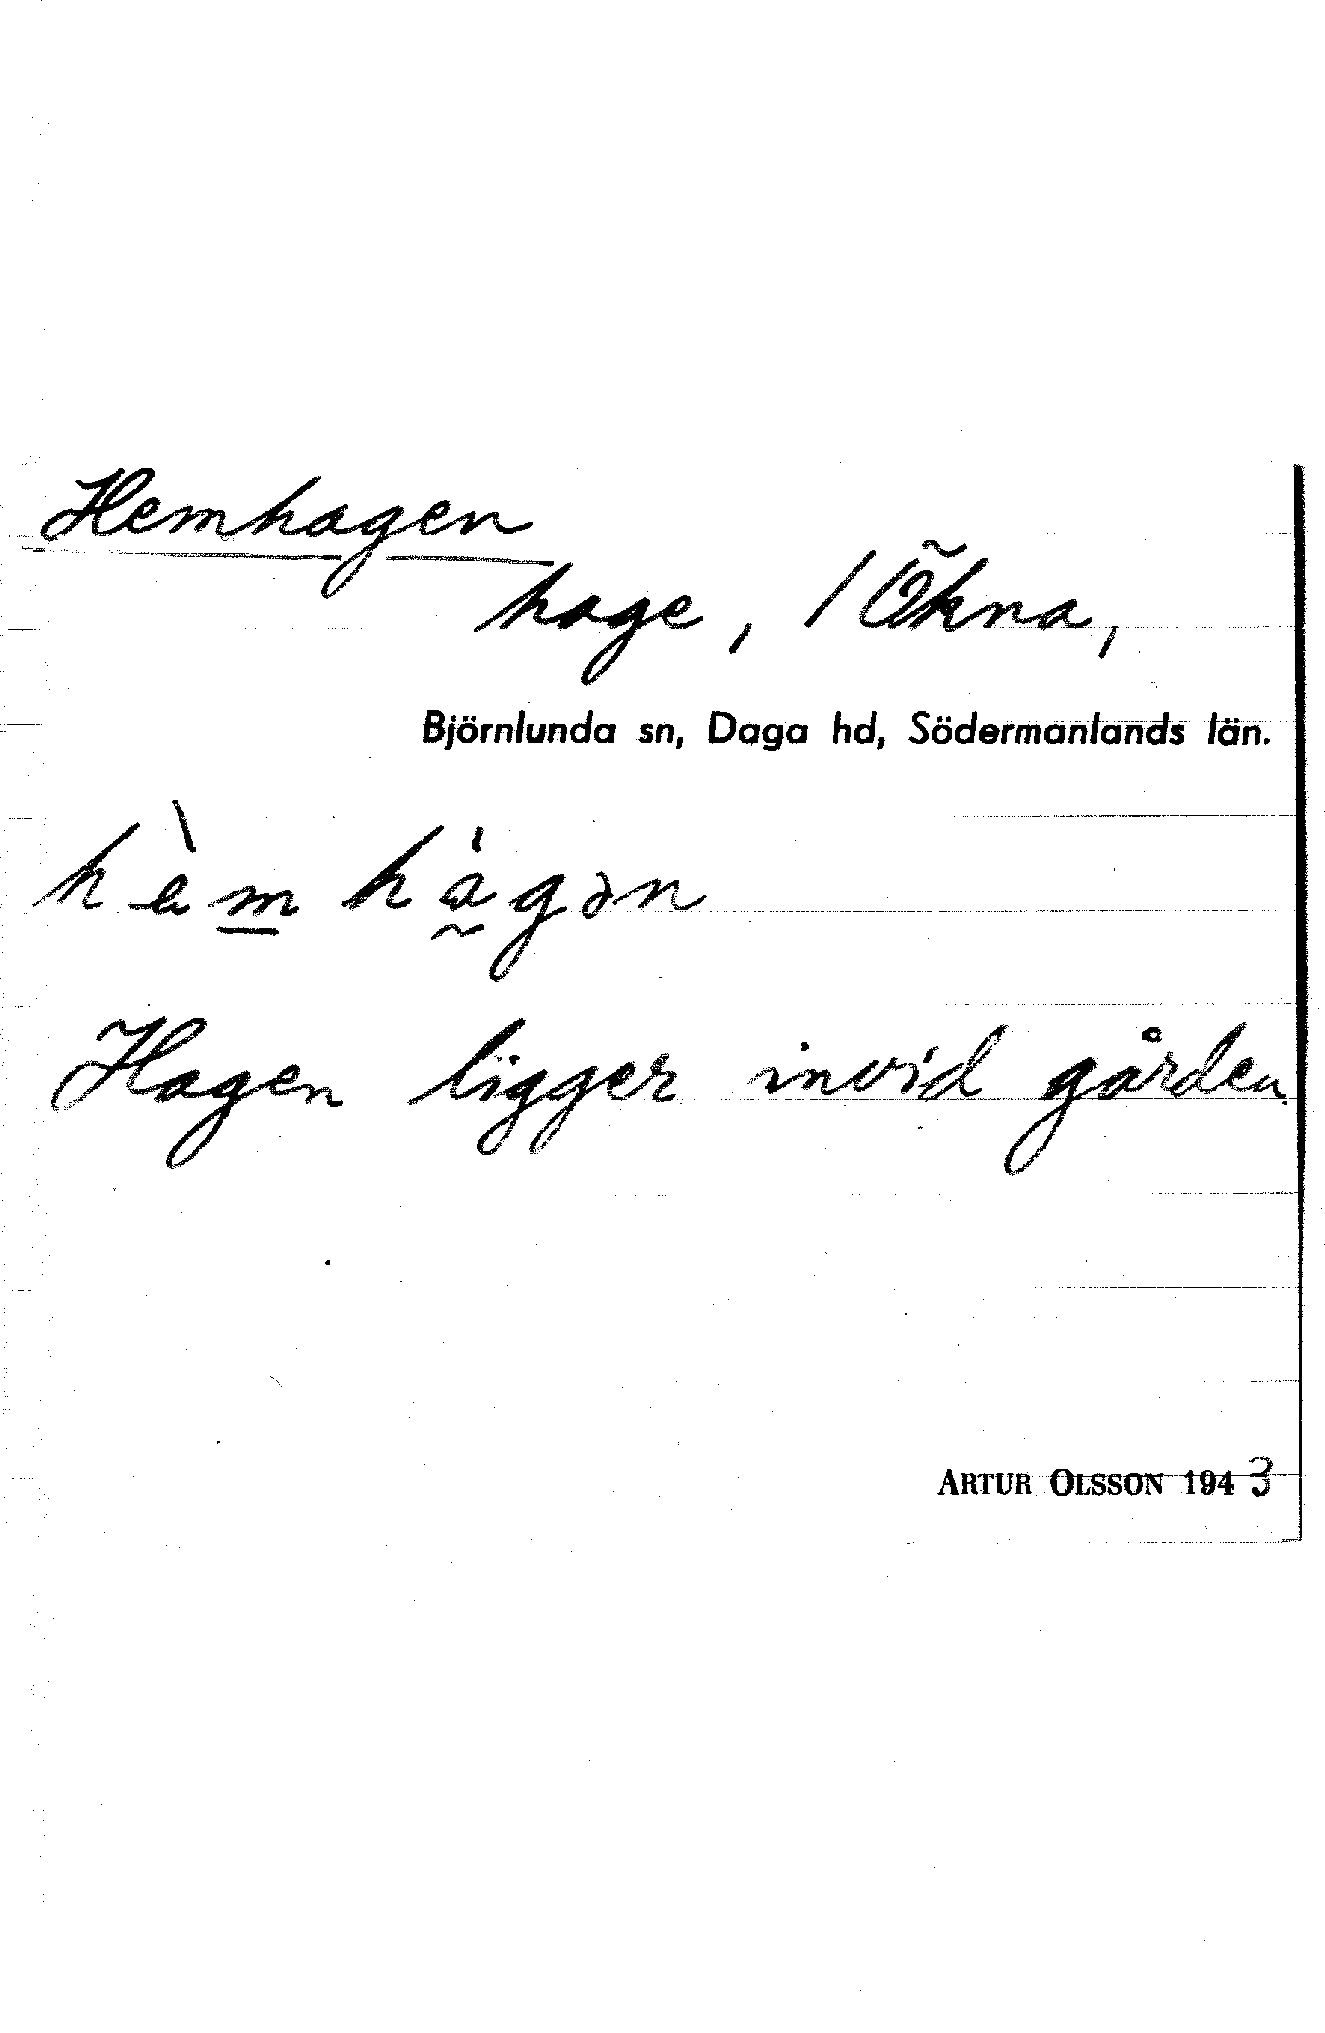 Hemhagen
hage, / Ökna,
Björnlunda sn, Daga hd, Södermanlands län.
hèm hágən
Hagen ligger invid gården.
ARTUR OLSSON 1943